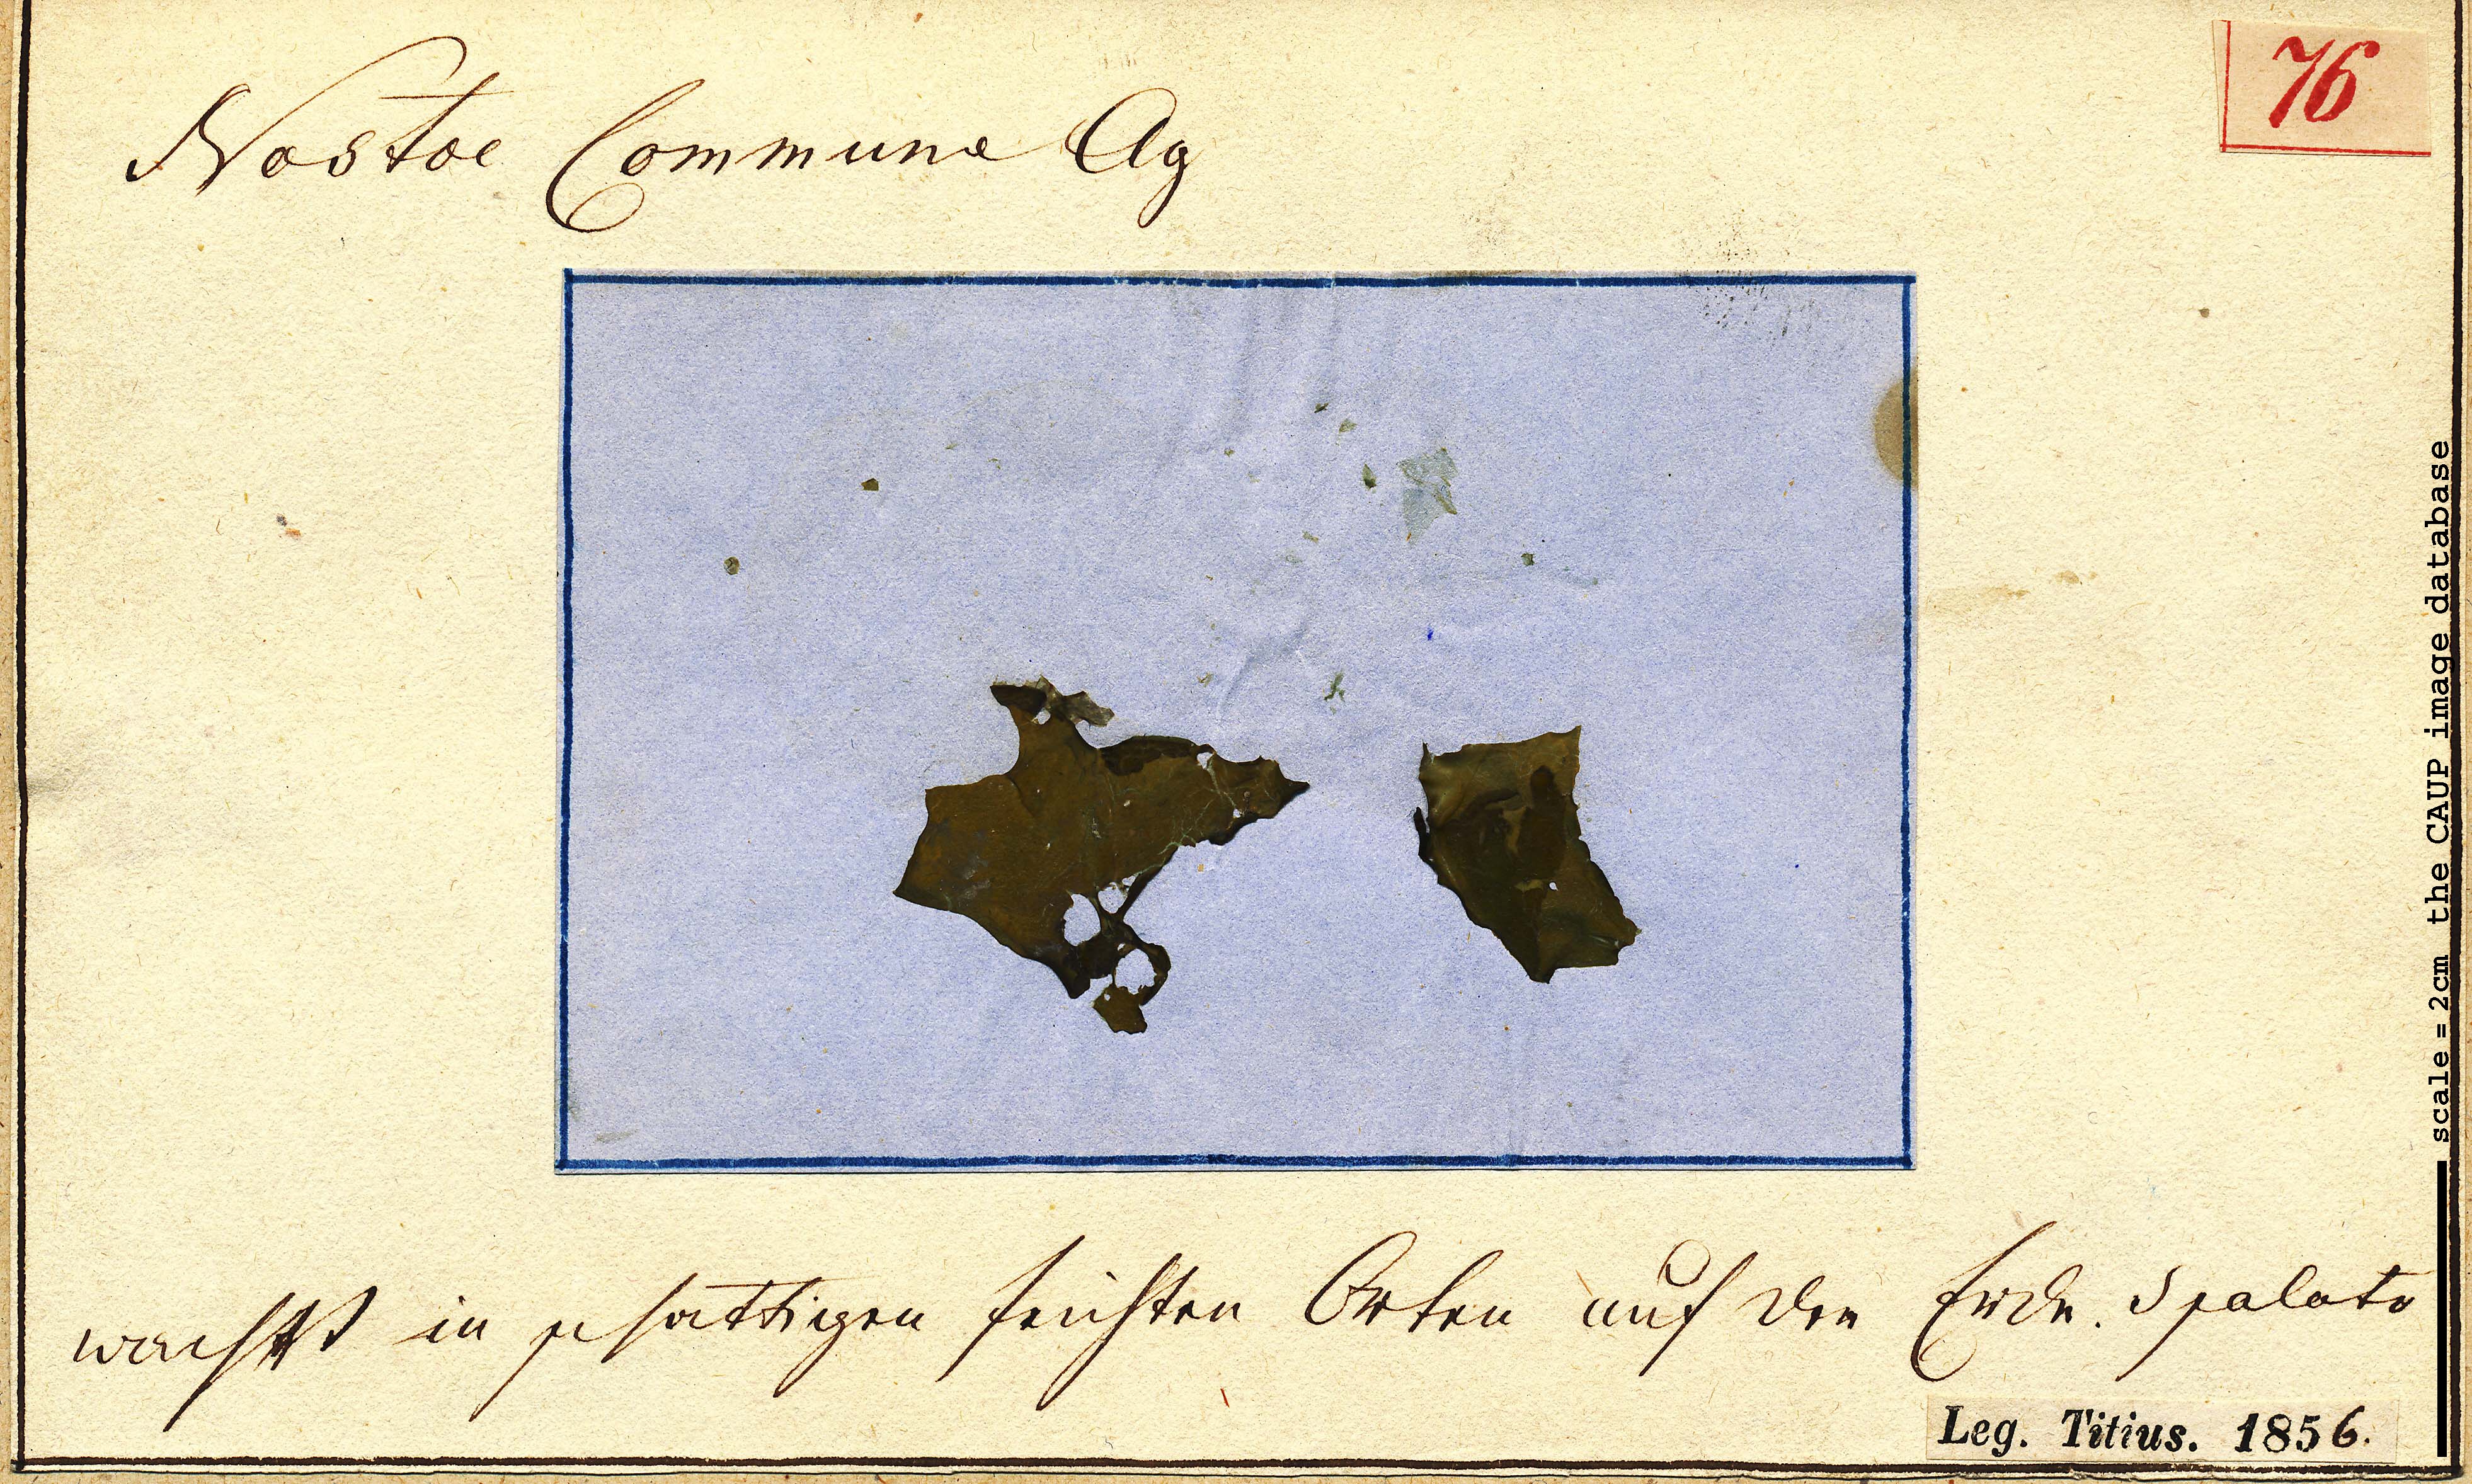 Nostoc Commune Ag
76
wachst in schattigen feichten Orten auf der Erde. Spalato
Leg. Titius. 1856.
scale = 2cm the CAUP image database